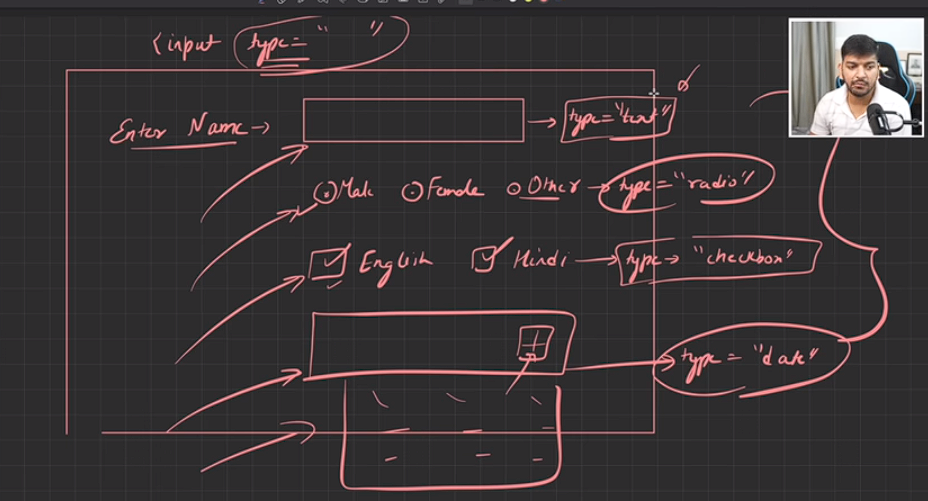 <input type=" "
Enter Name → → type="text"
Male Female Other → type="radio"
English Hindi → type → "checkbox"
type = "date"